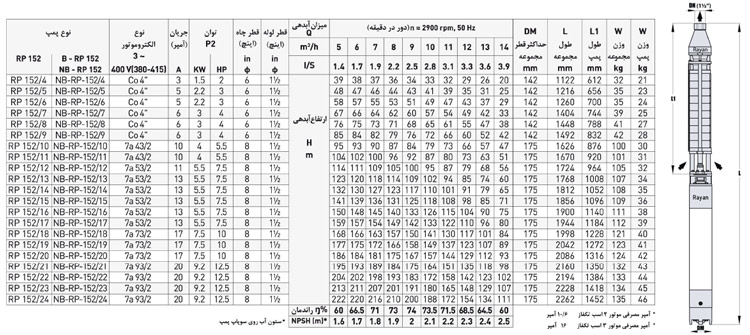 نوع پمپ نوع الکتروموتور جریان (آمپر) توان P2 قطر چاه (اینچ) قطر لوله (اینچ) میزان آبدهی Q (دور در دقیقه) n = 2900 rpm, 50 Hz DM حداکثر قطر مجموعه L طول مجموعه L1 طول پمپ W وزن مجموعه W وزن پمپ
RP 152 B - RP 152 NB - RP 152 3 ~ 400 V(380-415) A KW HP in ϕ in ϕ
m³/h 5 6 7 8 9 10 11 12 13 14 mm mm mm kg kg
l/S 1.4 1.7 1.9 2.2 2.5 2.8 3.1 3.3 3.6 3.9
ارتفاع آبدهی H m
RP 152/4 NB-RP-152/4 Co 4" 3 1.5 2 6 1½ 39 38 37 36 34 33 32 29 26 20 142 1122 612 32 21
RP 152/5 NB-RP-152/5 Co 4" 5 2.2 3 6 1½ 48 47 46 44 43 41 39 35 31 25 142 1216 656 35 23
RP 152/6 NB-RP-152/6 Co 4" 5 2.2 3 6 1½ 58 57 55 53 51 49 47 43 37 29 142 1260 700 35 24
RP 152/7 NB-RP-152/7 Co 4" 6 3 4 6 1½ 67 66 64 62 60 57 54 49 42 33 142 1404 744 39 25
RP 152/8 NB-RP-152/8 Co 4" 6 3 4 6 1½ 76 75 73 71 68 65 61 55 47 37 142 1448 788 41 27
RP 152/9 NB-RP-152/9 Co 4" 6 3 4 6 1½ 85 84 82 79 76 72 66 60 52 42 142 1492 832 42 28
RP 152/10 NB-RP-152/10 7a 43/2 10 4 5.5 8 1½ 95 93 90 87 84 79 73 66 57 47 175 1626 876 100 30
RP 152/11 NB-RP-152/11 7a 43/2 10 4 5.5 8 1½ 104 102 100 96 92 87 80 73 63 51 175 1670 920 101 31
RP 152/12 NB-RP-152/12 7a 53/2 11 5.5 7.5 8 1½ 114 111 109 105 100 95 87 79 68 56 175 1724 964 105 32
RP 152/13 NB-RP-152/13 7a 53/2 13 5.5 7.5 8 1½ 123 120 118 114 109 102 94 85 74 60 175 1768 1008 107 34
RP 152/14 NB-RP-152/14 7a 53/2 13 5.5 7.5 8 1½ 132 130 127 123 117 110 101 91 79 65 175 1812 1052 108 35
RP 152/15 NB-RP-152/15 7a 53/2 13 5.5 7.5 8 1½ 141 139 136 131 125 118 108 98 85 71 175 1856 1096 109 36
RP 152/16 NB-RP-152/16 7a 53/2 13 5.5 7.5 8 1½ 150 148 145 140 133 126 115 104 90 75 175 1900 1140 111 38
RP 152/17 NB-RP-152/17 7a 53/2 13 5.5 7.5 8 1½ 159 157 154 149 142 133 122 110 96 80 175 1944 1184 112 39
RP 152/18 NB-RP-152/18 7a 73/2 17 7.5 10 8 1½ 168 166 163 157 150 141 130 117 101 84 175 1998 1228 121 40
RP 152/19 NB-RP-152/19 7a 73/2 17 7.5 10 8 1½ 177 175 172 166 158 149 137 123 107 89 175 2042 1272 123 41
RP 152/20 NB-RP-152/20 7a 73/2 17 7.5 10 8 1½ 186 184 181 175 167 157 144 129 112 93 175 2086 1316 124 42
RP 152/21 NB-RP-152/21 7a 93/2 20 9.2 12.5 8 1½ 195 193 189 184 175 164 151 135 118 98 175 2160 1350 132 43
RP 152/22 NB-RP-152/22 7a 93/2 20 9.2 12.5 8 1½ 204 202 198 193 183 172 158 142 123 102 175 2194 1384 133 44
RP 152/23 NB-RP-152/23 7a 93/2 20 9.2 12.5 8 1½ 213 211 207 201 192 180 165 148 129 107 175 2228 1418 134 45
RP 152/24 NB-RP-152/24 7a 93/2 20 9.2 12.5 8 1½ 222 220 216 210 200 187 172 154 134 111 175 2262 1452 135 46
راندمان η% 60 66.5 71 73 74 73.5 71.5 68.5 64.5 60
*ستون آب روی سوپاپ پمپ NPSH (m)* 1.6 1.7 1.8 1.9 2 2.1 2.2 2.3 2.4 2.5
* آمپر مصرفی موتور ۳ اسب تکفاز ۱۰/۶ آمپر
* آمپر مصرفی موتور ۲ اسب تکفاز ۱۶ آمپر
(1½")
Rayan
L1
L
Rayan